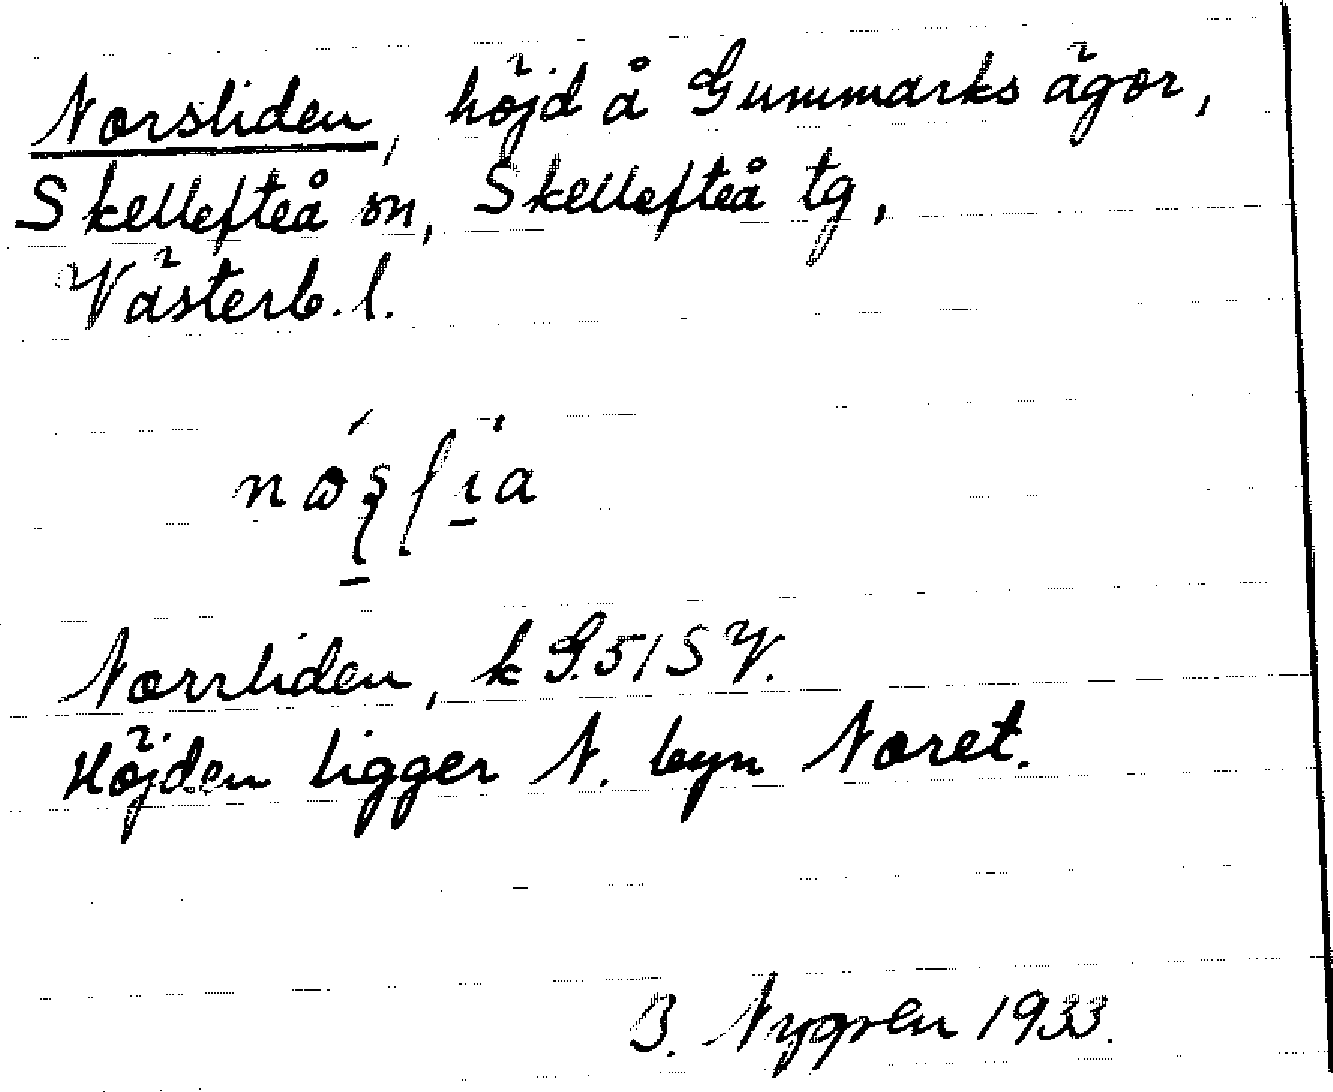 Norsliden, höjd å Gummarks ägor,
Skellefteå sn, Skellefteå tg,
Västerb. l.
Norrliden, k G. 51 SV.
Höjden ligger N. byn Noret.
B. Nygren 1933.